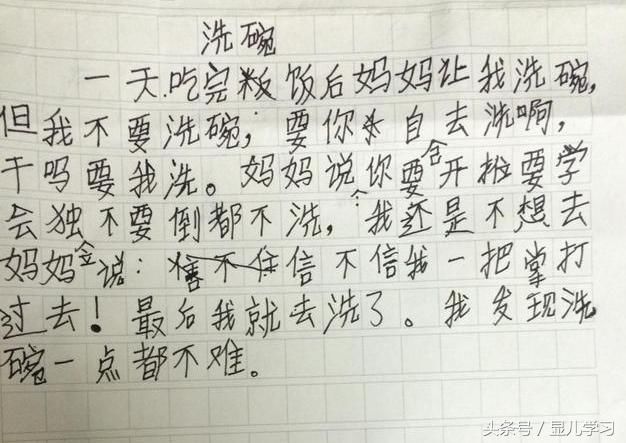 洗碗
一天.吃完粄饭后妈妈让我洗碗,
但我不要洗碗，要你自去洗啊,
干吗要我洗。妈妈说你要开啦要学
会独不要倒都不洗,我还是不想去
妈妈说：信不信我一把掌打
过去！最后我就去洗了。我发现洗
碗一点都不难。
头条号 / 显儿学习